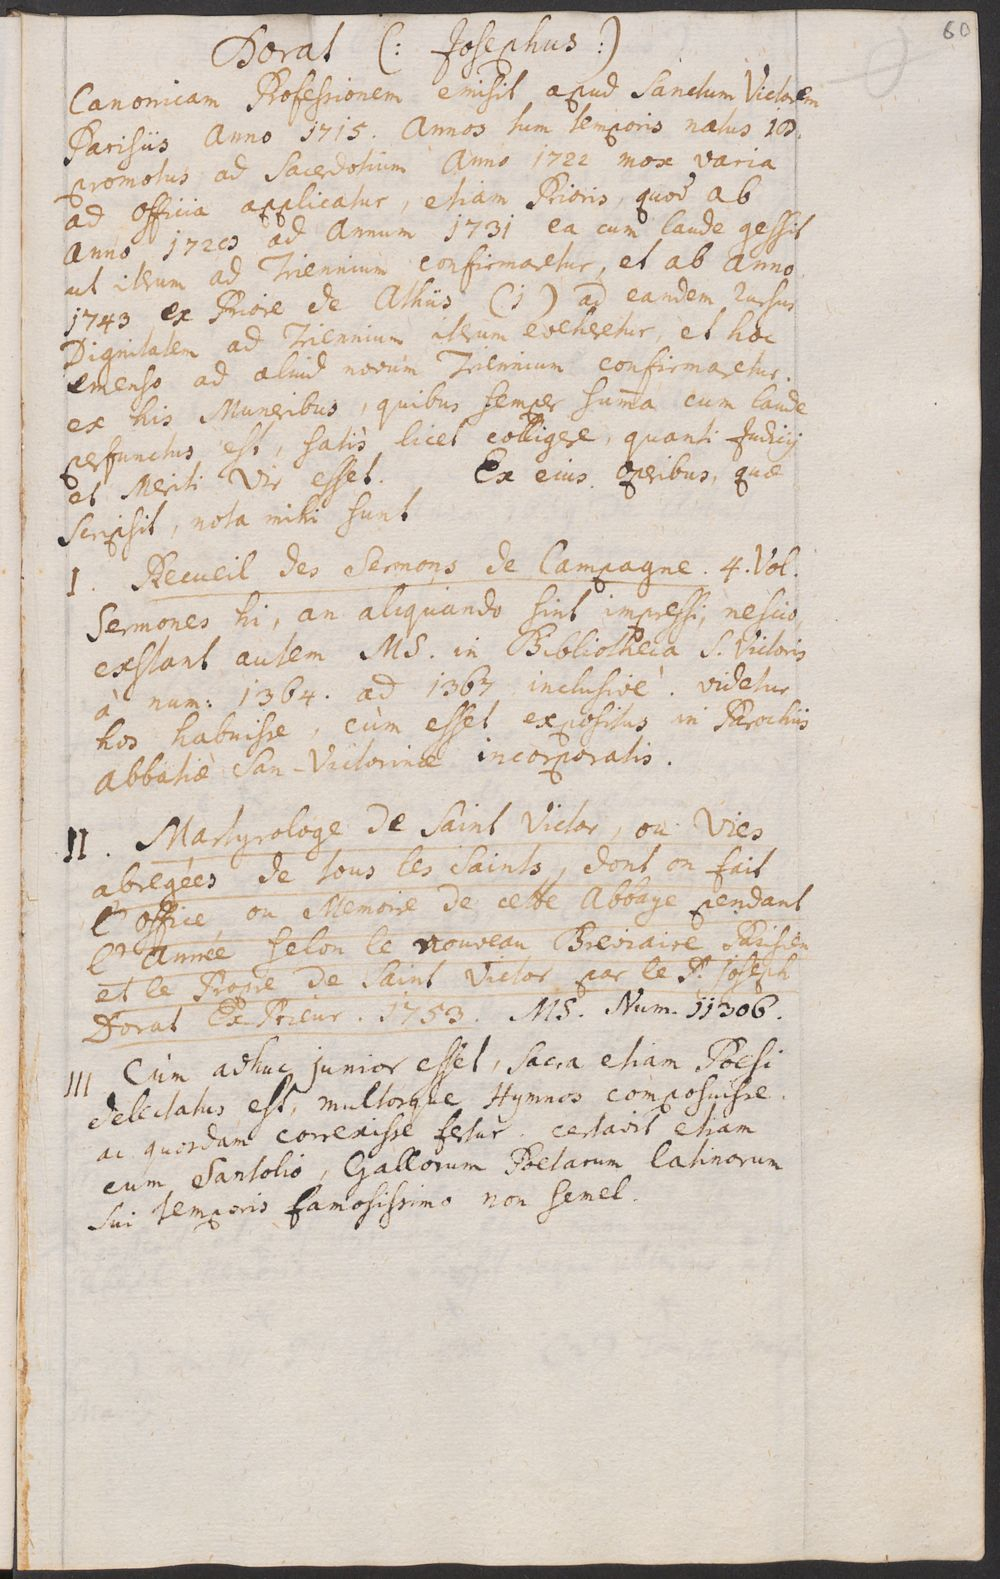 60
Dorat (: Josephus :)
Canonicam Professionem emisit apud Sanctum Victorem
Parisiis Anno 1715. Annos tum temporis natus 18.
promotus ad Sacerdotium Anno 1722 mox varia
ad officia applicatur, etiam Prioris, quod ab
Anno 1728 ad Annum 1731 ea cum laude gessit
ut iterum ad Triennium confirmaretur, et ab anno
1743 ex Priore de Athiis (1) ad eandem rursus
Dignitatem ad Triennium iterum eveheretur, et hoc
emenso ad aliud novum Triennium confirmaretur.
ex his Muneribus, quibus semper suma cum laude
perfunctus est, satis licet colligere, quanti Judicij
et Meriti Vir esset. Ex eius operibus, quæ
scripsit, nota mihi sunt
I. Recueil des Sermons de Campagne. 4. Vol.
Sermones hi, an aliquando sint impressi, nescio,
exstant autem MS. in Bibliotheca S. Victoris
à num: 1364. ad 1367 inclusivè. videtur
hos habuisse, cùm esset expositus in Parochiis
abbatiæ San-Victorinæ incorporatis.
II. Martyrologe de Saint Victor, ou Vies
abregées de tous les Saints, dont on fait
l'office ou Memoire de cette Abbaye pendant
l'Année selon le nouveau Breviaire Parisien
et le Propre de Saint Victor par le P. Joseph
Dorat Ex-Prieur. 1753. MS. Num. 11306.
III Cùm adhuc junior esset, sacra etiam Poesi
delectatus est, multosque Hymnos composuisse.
ac quosdam correxisse fertur. certavit etiam
cum Santolio, Gallorum Poetarum latinorum
sui temporis famosissimo non semel.